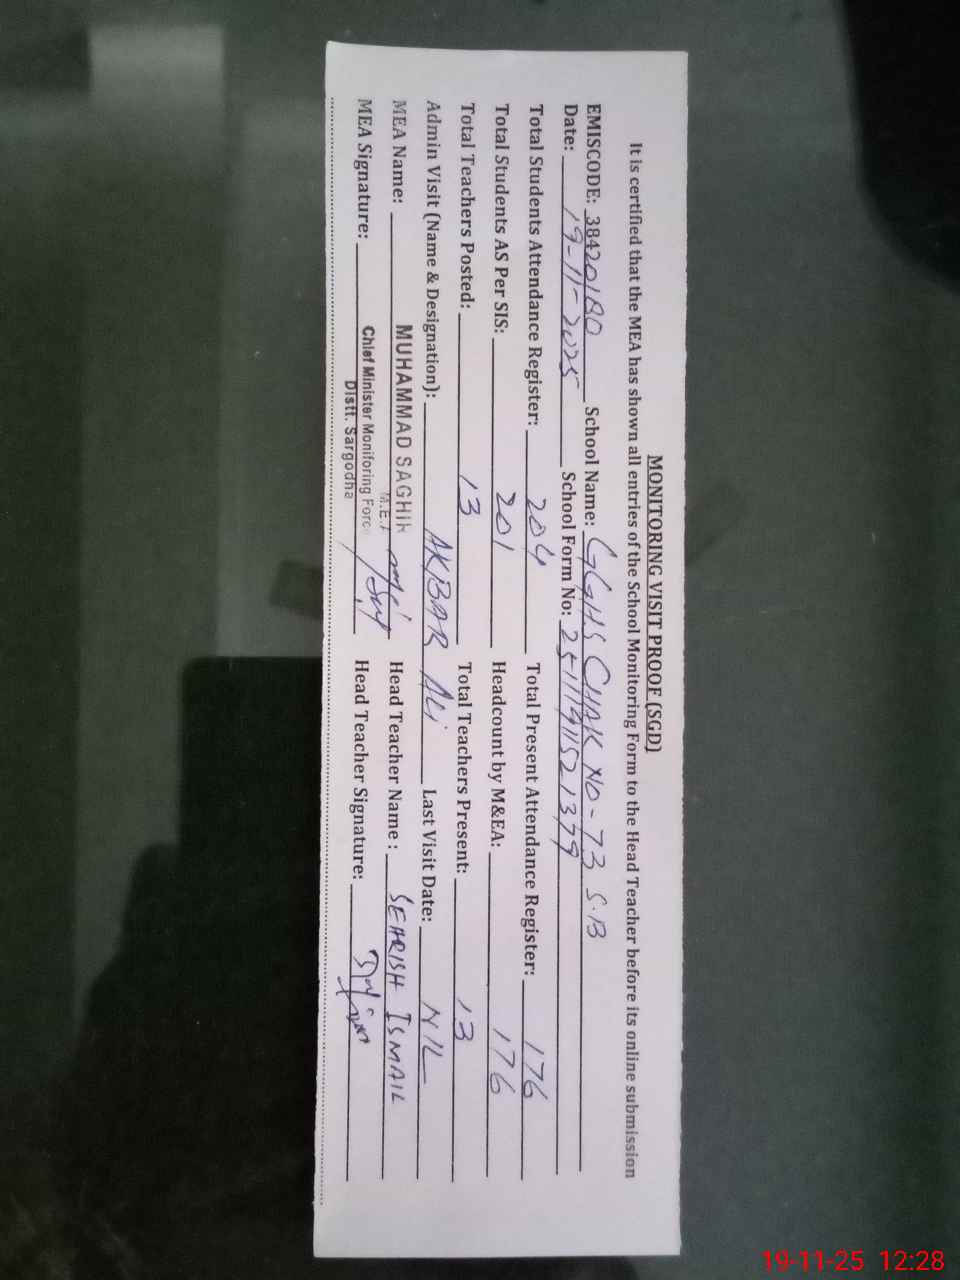 MONITORING VISIT PROOF (SGD)
It is certified that the MEA has shown all entries of the School Monitoring Form to the Head Teacher before its online submission
EMISCODE: 38420180 School Name: GGHS CHAK NO-73 S.B
Date: 19-11-2025 School Form No:
Total Students Attendance Register: 204 Total Present Attendance Register: 176
Total Students AS Per SIS: 201 Headcount by M&EA: 176
Total Teachers Posted: 13 Total Teachers Present: 13
Admin Visit (Name & Designation): AKBAR Ali Last Visit Date: NIL
MEA Name: MUHAMMAD SAGHIR Head Teacher Name : SEHRISH ISMAIL
M.E.A
MEA Signature: Chief Minister Monitoring Force Head Teacher Signature:
Distt. Sargodha
19-11-25 12:28